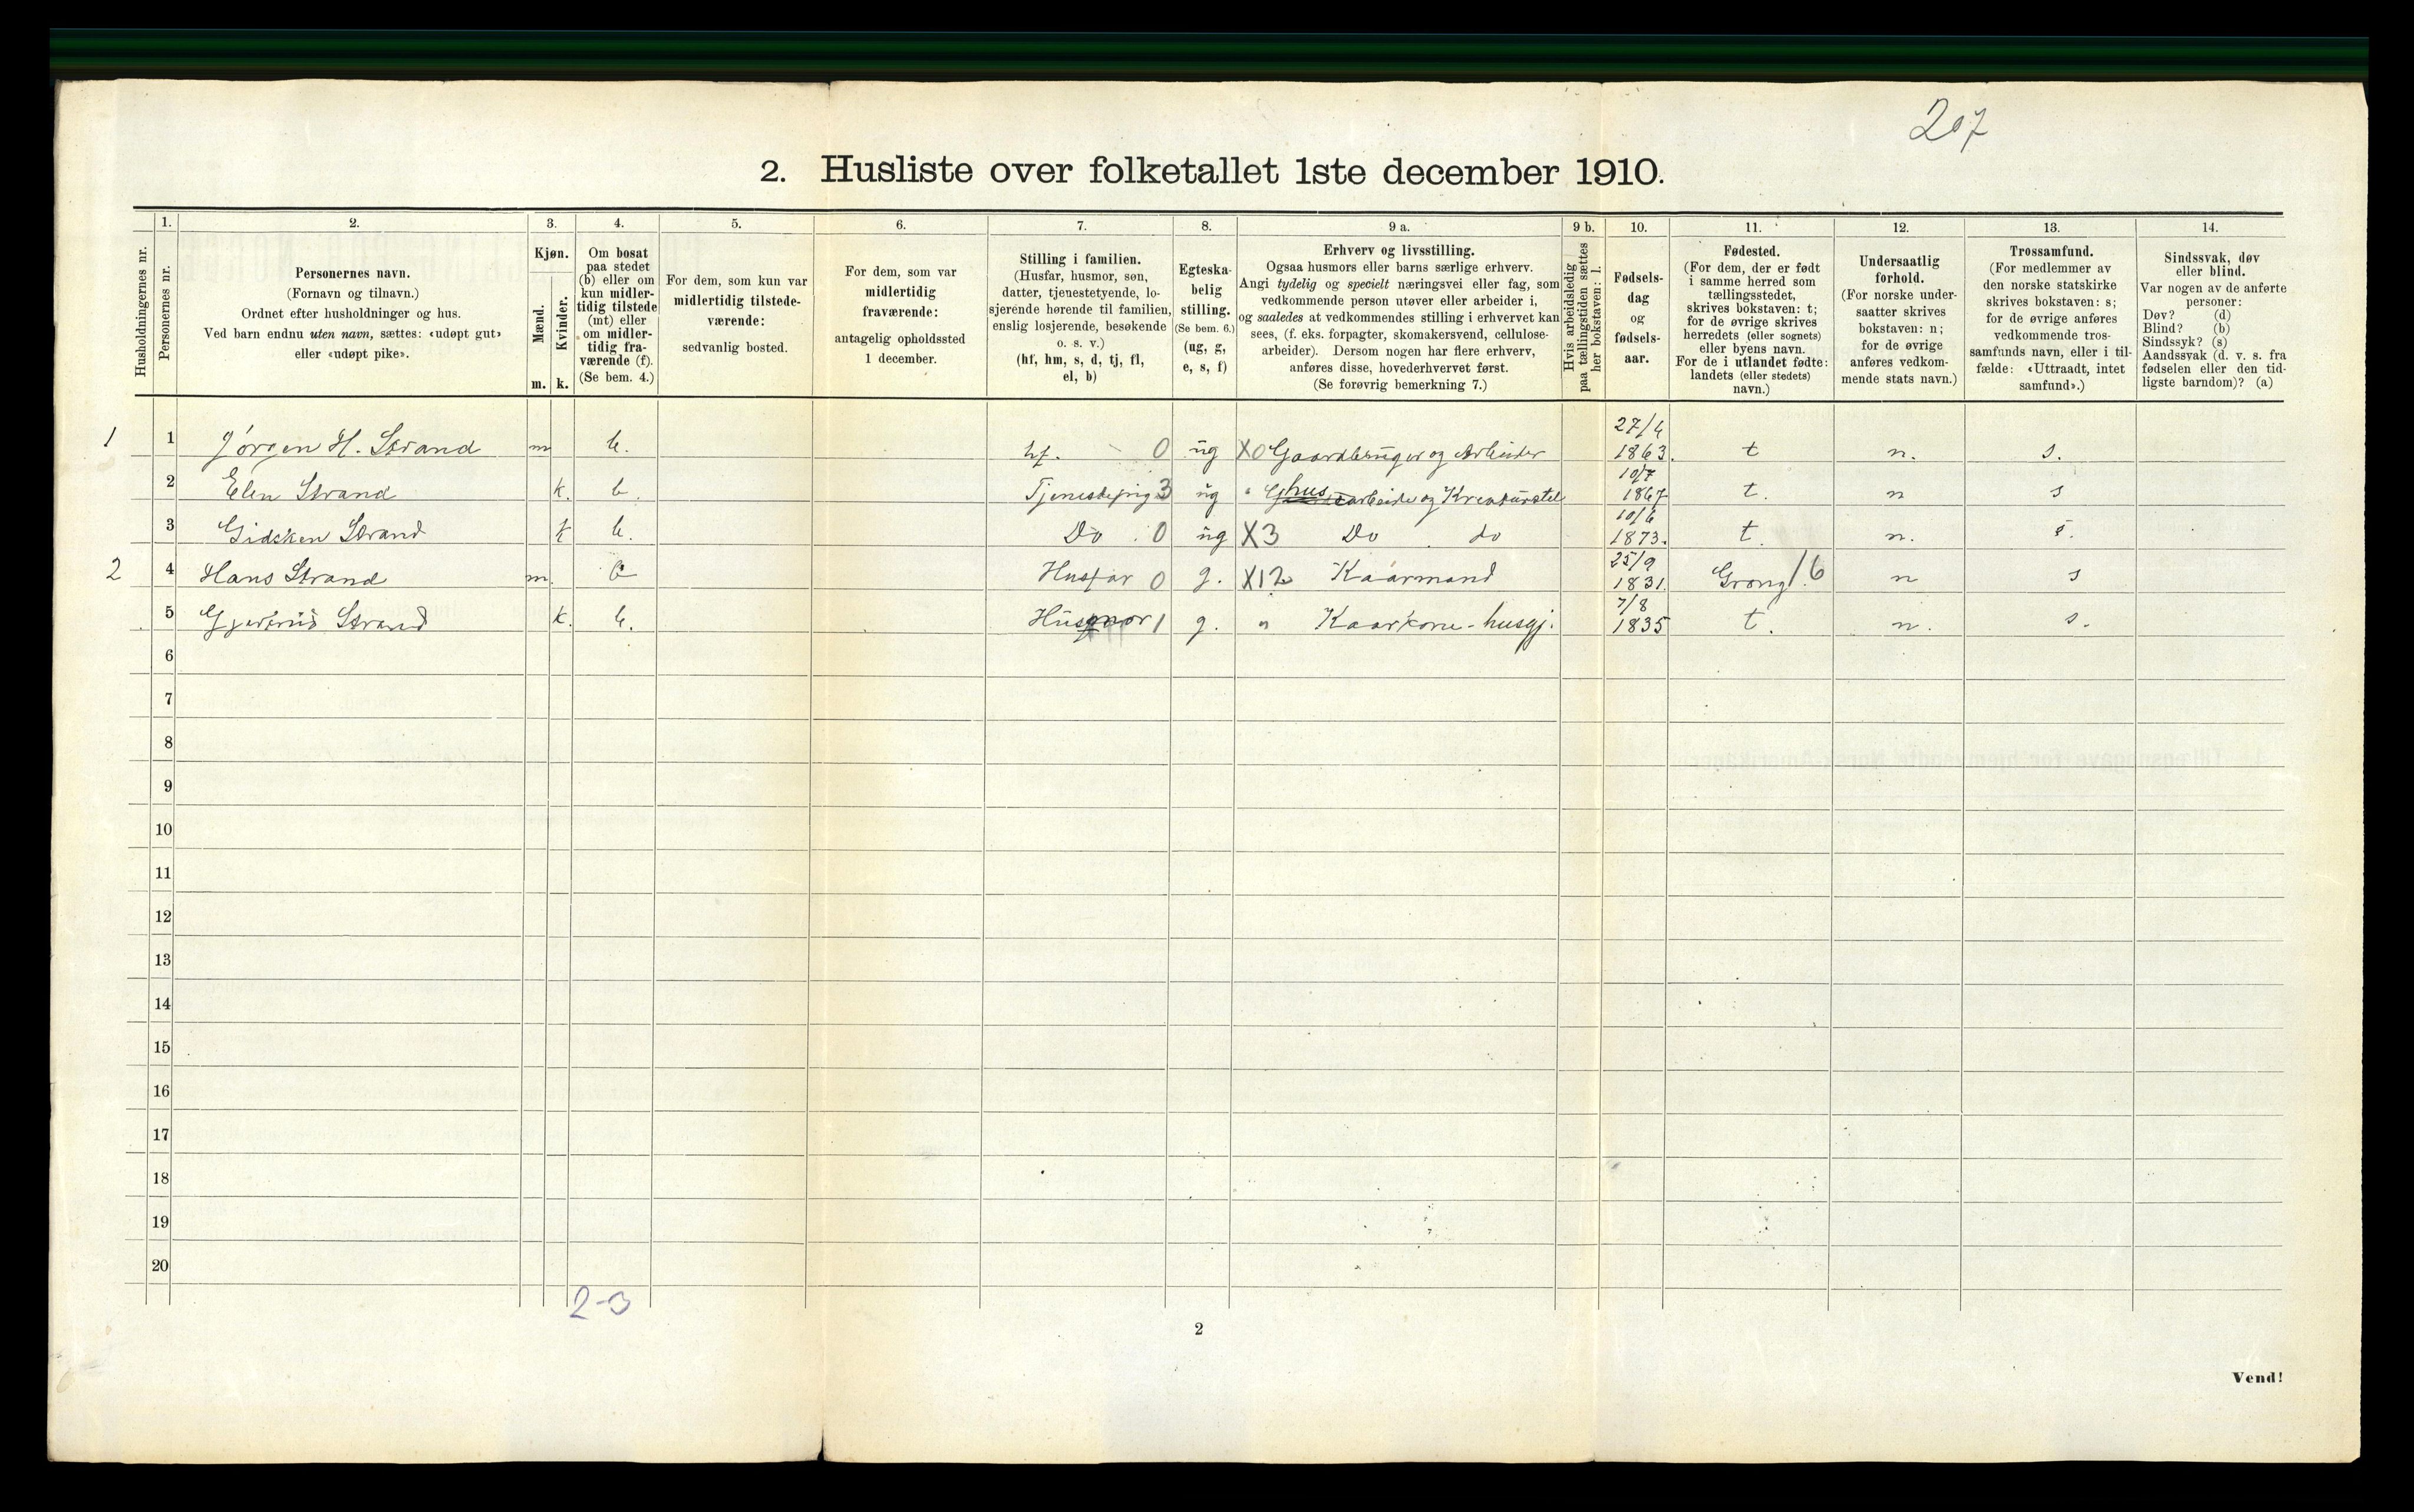 207
2. Husliste over folketallet 1ste december 1910.
Husholdningernes nr.
1.
Personernes nr.
2.
Personernes navn.
(Fornavn og tilnavn.)
Ordnet efter husholdninger og hus.
Ved barn endnu uten navn, sættes: «udøpt gut»
eller «udøpt pike».
3.
Kjøn.
Mænd.
Kvinder.
m. k.
4.
Om bosat
paa stedet
(b) eller om
kun midler-
tidig tilstede
(mt) eller
om midler-
tidig fra-
værende (f).
(Se bem. 4.)
5.
For dem, som kun var
midlertidig tilstede-
værende:
sedvanlig bosted.
6.
For dem, som var
midlertidig
fraværende:
antagelig opholdssted
1 december.
7.
Stilling i familien.
(Husfar, husmor, søn,
datter, tjenestetyende, lo-
sjerende hørende til familien,
enslig losjerende, besøkende
o. s. v.)
(hf, hm, s, d, tj, fl,
el, b)
8.
Egteska-
belig
stilling.
(Se bem. 6.)
(ug, g,
e, s, f)
9 a.
Erhverv og livsstilling.
Ogsaa husmors eller barns særlige erhverv.
Angi tydelig og specielt næringsvei eller fag, som
vedkommende person utøver eller arbeider i,
og saaledes at vedkommendes stilling i erhvervet kan
sees, (f. eks. forpagter, skomakersvend, cellulose-
arbeider). Dersom nogen har flere erhverv,
anføres disse, hovederhvervet først.
(Se forøvrig bemerkning 7.)
9 b.
Hvis arbeidsledig
paa tællingstiden sættes
her bokstaven: l.
10.
Fødsels-
dag
og
fødsels-
aar.
11.
Fødested.
(For dem, der er født
i samme herred som
tællingsstedet,
skrives bokstaven: t;
for de øvrige skrives
herredets (eller sognets)
eller byens navn.
For de i utlandet fødte:
landets (eller stedets)
navn.)
12.
Undersaatlig
forhold.
(For norske under-
saatter skrives
bokstaven: n;
for de øvrige
anføres vedkom-
mende stats navn.)
13.
Trossamfund.
(For medlemmer av
den norske statskirke
skrives bokstaven: s;
for de øvrige anføres
vedkommende tros-
samfunds navn, eller i til-
fælde: «Uttraadt, intet
samfund».)
14.
Sindssvak, døv
eller blind.
Var nogen av de anførte
personer:
Døv? (d)
Blind? (b)
Sindssyk? (s)
Aandssvak (d. v. s. fra
fødselen eller den tid-
ligste barndom)? (a)
1 1 Jørgen H. Strand m b. hf. 0 ug X0 Gaardbruger og Arbeider 27/4 1863. t n. s.
2 Elen Strand k. b. Tjenestepige 3 ug " hus arbeide og Kreaturstel 10/7 1867 t. n s
3 Gidsken Strand k b. Do. 0 ug X3 Do. do 10/6 1873. t. n. s.
2 4 Hans Strand m. b Husfar 0 g. X12 Kaarmand 25/9 1831. Grong 16 n s
5 Gjertrud Strand k. b. Husmor 1 g. " Kaarkone - husgj. 7/8 1835 t. n. s.
6
7
8
9
10
11
12
13
14
15
16
17
18
19
20
2-3
2
Vend!